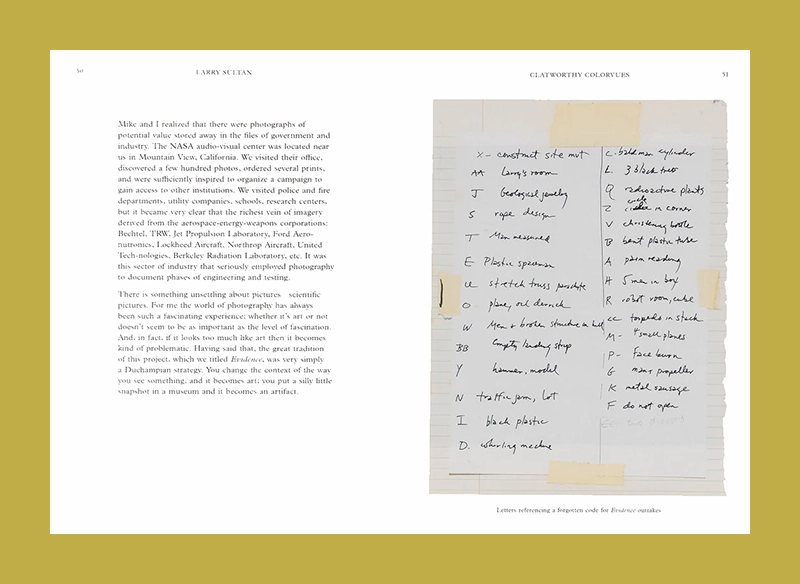 50
LARRY SULTAN
Mike and I realized that there were photographs of
potential value stored away in the files of government and
industry. The NASA audio-visual center was located near
us in Mountain View, California. We visited their office,
discovered a few hundred photos, ordered several prints,
and were sufficiently inspired to organize a campaign to
gain access to other institutions. We visited police and fire
departments, utility companies, schools, research centers,
but it became very clear that the richest vein of imagery
derived from the aerospace-energy-weapons corporations:
Bechtel, TRW, Jet Propulsion Laboratory, Ford Aero-
nutronics, Lockheed Aircraft, Northrop Aircraft, United
Tech-nologies, Berkeley Radiation Laboratory, etc. It was
this sector of industry that seriously employed photography
to document phases of engineering and testing.
There is something unsettling about pictures scientific
pictures. For me the world of photography has always
been such a fascinating experience; whether it's art or not
doesn't seem to be as important as the level of fascination.
And, in fact, if it looks too much like art then it becomes
kind of problematic. Having said that, the great tradition
of this project, which we titled Evidence, was very simply
a Duchampian strategy. You change the context of the way
you see something, and it becomes art; you put a silly little
snapshot in a museum and it becomes an artifact.
CLATWORTHY COLORVUES
51
X - construct site mvt
AA Larry's room
J Geological jewelry
S rope design
T Man measured
E Plastic spaceman
stretch truss parachute
O plane, oil derrick
W Men & broken structure in
BB Empty landing strip
Y hammer, model
N traffic jam, lot
I black plastic
D. whirling machine
C. bald man cylinder
L. 3 black
Q radioactive plants
Z circle in corner
V christening bottle
B bent plastic tube
A palm reading
H 5 men in box
R robot room, cube
CC torpedo in stack
M - 4 small planes
P - Face burn
G man & propeller
K metal sausage
F do not open
Letters referencing a forgotten code for Evidence outtakes